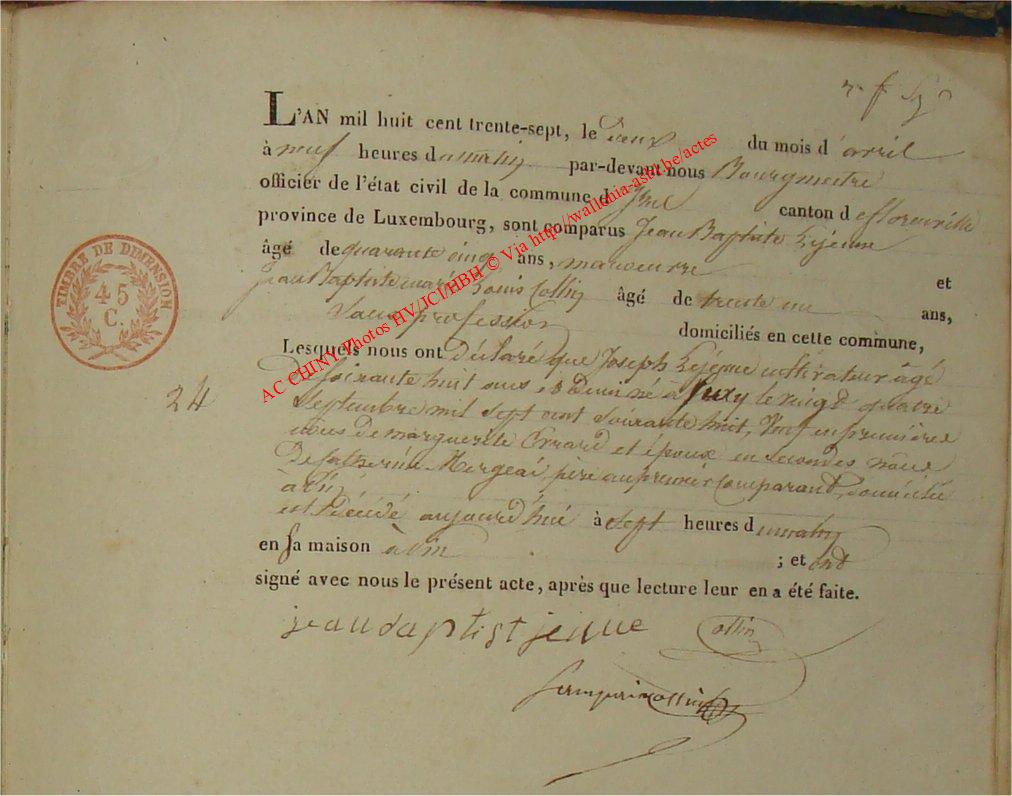 L'AN mil huit cent trente-sept, le deux du mois d'avril
à neuf heures du matin par-devant nous Bourgmestre
officier de l'état civil de la commune d'Izel canton de florenville
province de Luxembourg, sont comparus Jean Baptiste Lejeune
âgé de quarante cinq ans, manoeuvre et
Jean Baptiste marie Louis Collin âgé de trente un ans,
Sans profession domiciliés en cette commune,
Lesquels nous ont déclaré que Joseph Lejeune cultivateur âgé
De soixante huit ans et Demi né à Suxy le vingt quatre
Septembre mil sept cent soixante huit, Veuf en premières
noces De marguerite Errard et époux en secondes nôces
De catherine Mergeai, père au premier Comparant, domicilié
à Pin
est décédé aujourd'hui à sept heures du matin
en sa maison à Pin ; et ont
signé avec nous le présent acte, après que lecture leur en a été faite.
jeau baptist jeune Collin
TIMBRE DE DIMENSION
45
C.
24
AC CHINY Photos HV/JCI/HBH © Via http//wallonia-asbl.be/actes